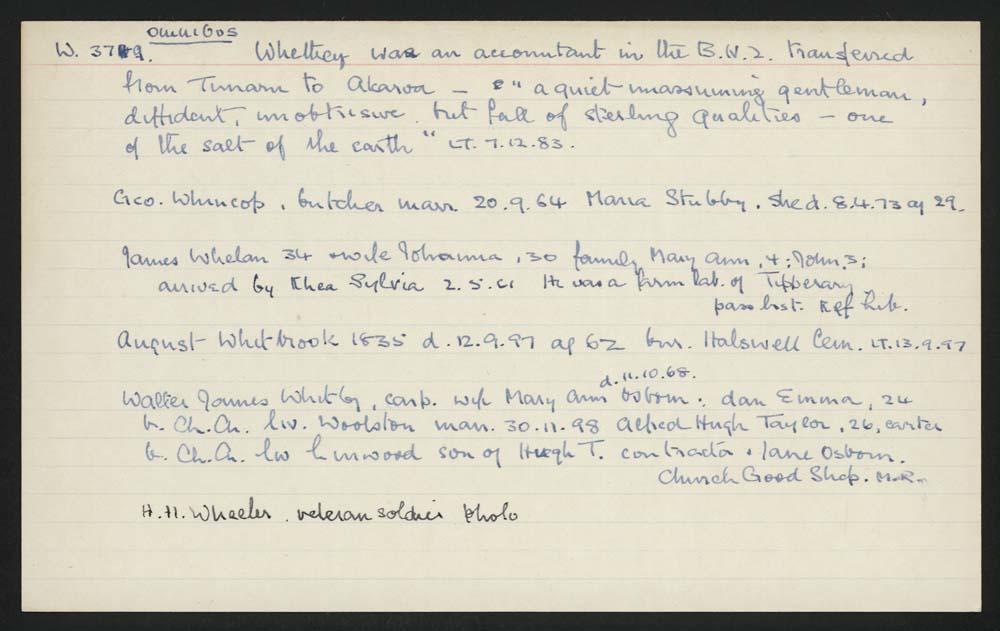 omnibus
W. 3749. Whelthey was an accountant in the B.N.Z. transferred
from Timaru to Akaroa - "a quiet unassuming gentleman,
diffident, unobtrusive but full of sterling qualities - one
of the salt of the earth" LT. 7.12.83.
Geo. Whincop, butcher marr. 20.9.64 Maria Stubby. She d. 8.4.73 ag 29.
James Whelan 34 + wife Johanna, 30 family Mary Ann, 4; John, 3;
arrived by Rhea Sylvia 2.5.61 He was a farm lab. of Tipperary
pass list. Ref Lib.
August Whitbrook 1835 d. 12.9.97 ag 62 bur. Halswell Cem. LT.13.9.97
d. 11.10.68.
Walter James Whitby, carp. wife Mary Ann Osborn: dau Emma, 24
b. Ch.Ch. liv. Woolston marr. 30.11.98 Alfred Hugh Taylor, 26, carter
b. Ch.Ch. liv Linwood son of Hugh T. contractor + Jane Osborn.
Church Good Shep. M.R.
H.H. Wheeler. veteran soldier photo